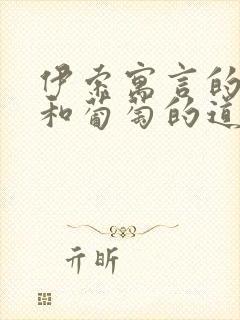 伊索寓言的
和葡萄的道
亓昕